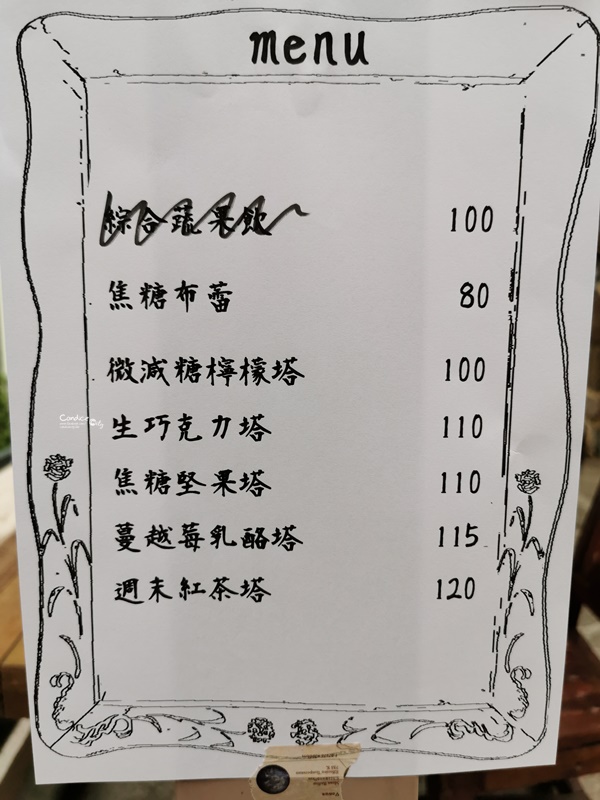 menu
綜合蔬果飲 100
焦糖布蕾 80
微減糖檸檬塔 100
生巧克力塔 110
焦糖堅果塔 110
蔓越莓乳酪塔 115
週末紅茶塔 120